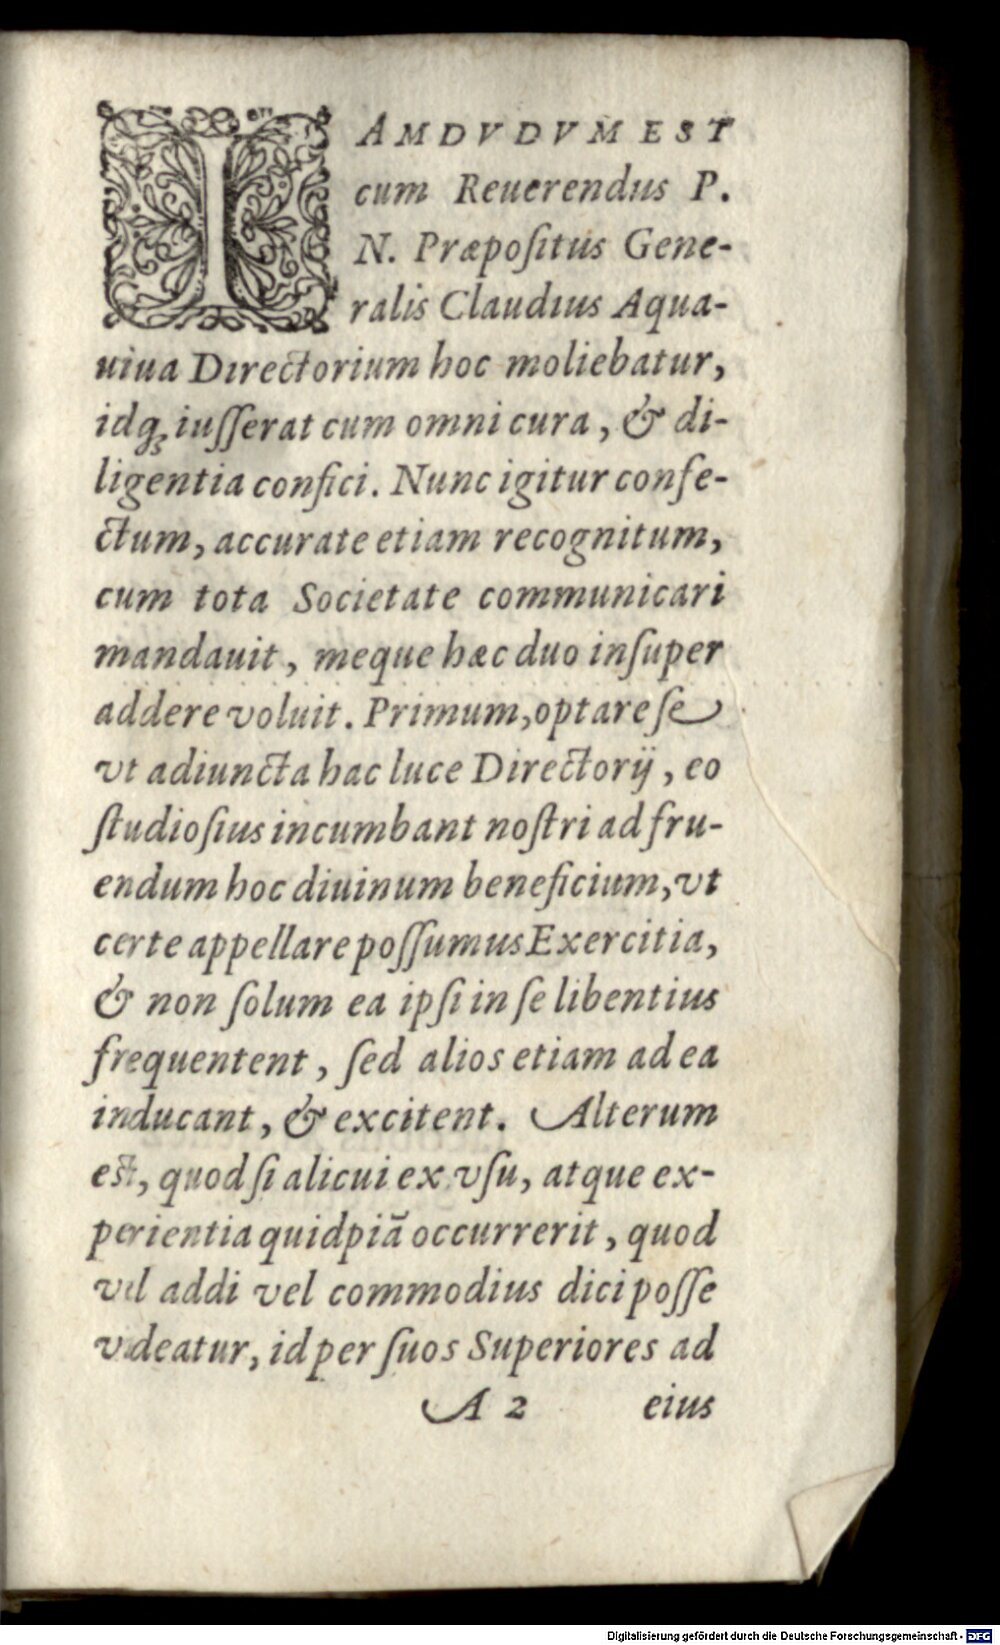 IAMDVDVM EST
cum Reuerendus P.
N. Præpoſitus Gene-
ralis Claudius Aqua-
uiua Directorium hoc moliebatur,
idq́ꝫ iuſſerat cum omni cura, & di-
ligentia confici. Nunc igitur confe-
ctum, accurate etiam recognitum,
cum tota Societate communicari
mandauit, meque hæc duo inſuper
addere voluit. Primum, optare ſe
vt adiuncta hac luce Directorij, eo
ſtudioſius incumbant noſtri ad fru-
endum hoc diuinum beneficium, vt
certe appellare poſſumus Exercitia,
& non ſolum ea ipſi in ſe libentius
frequentent, ſed alios etiam ad ea
inducant, & excitent. Alterum
est, quod ſi alicui ex vſu, atque ex-
perientia quidpiã occurrerit, quod
vel addi vel commodius dici poſſe
videatur, id per ſuos Superiores ad
A 2 eius
Digitalisierung gefördert durch die Deutsche Forschungsgemeinschaft - DFG